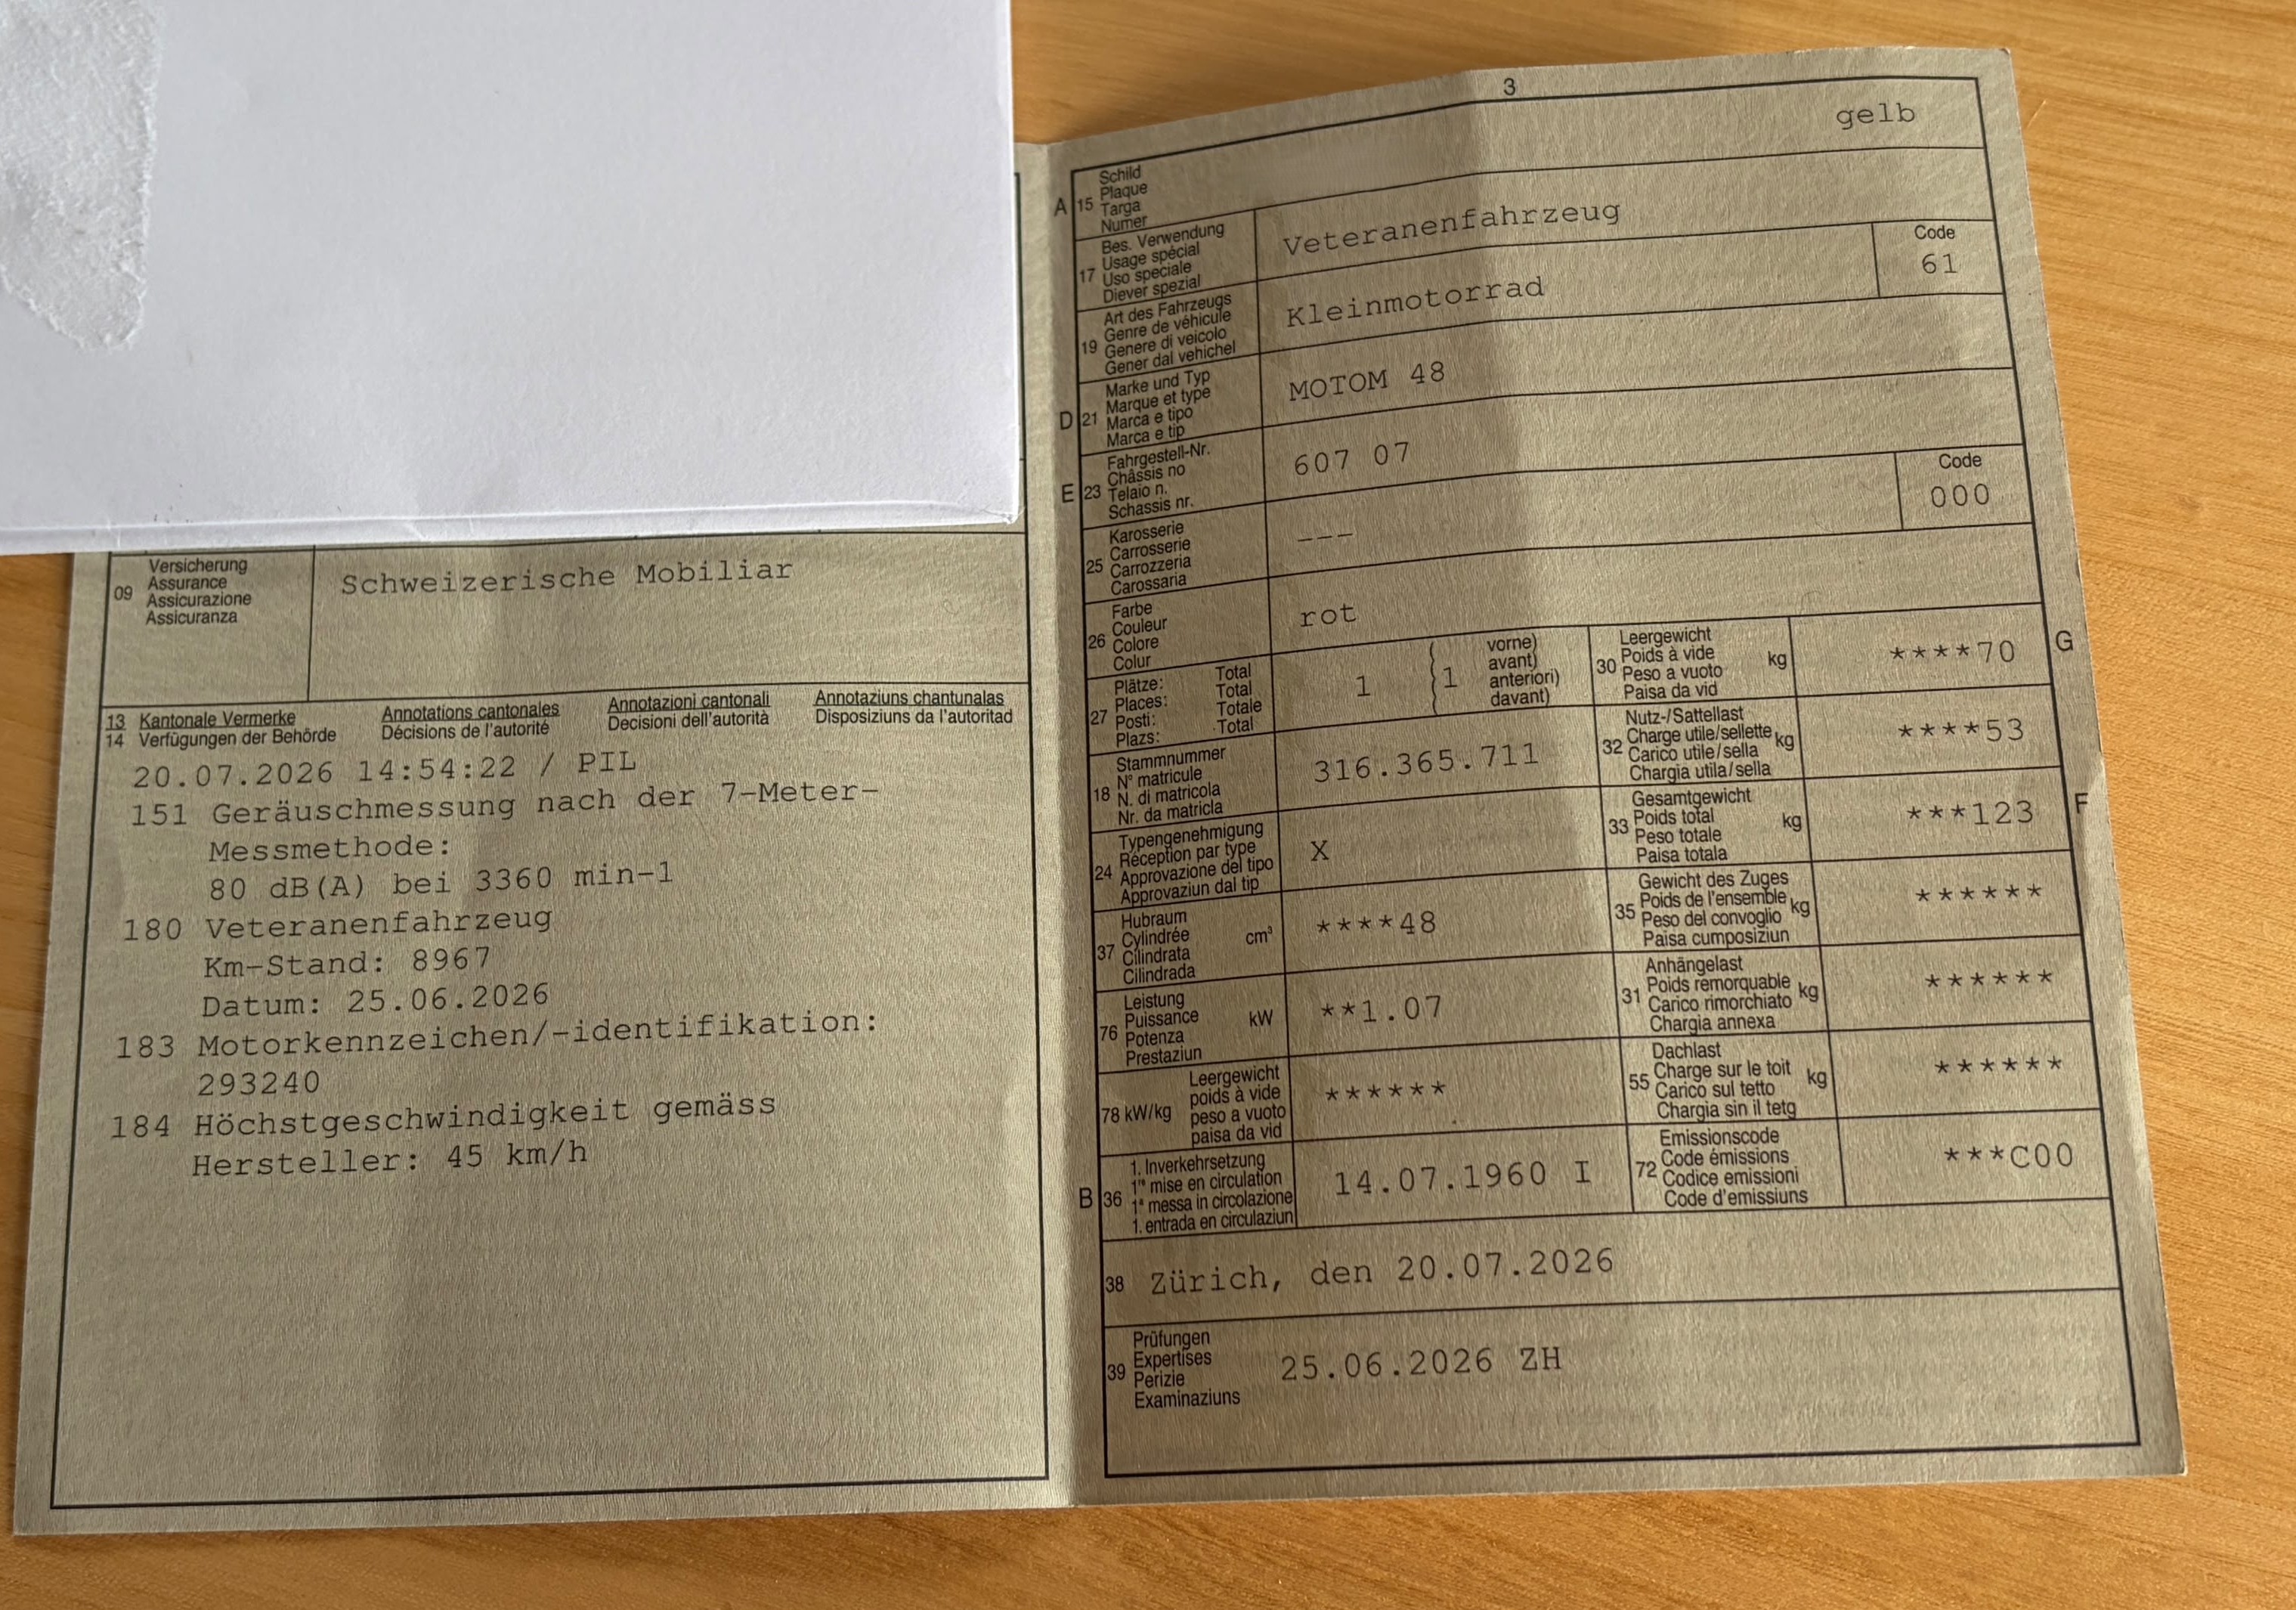 09 Versicherung
Assurance
Assicurazione
Assicuranza
Schweizerische Mobiliar
13 Kantonale Vermerke Annotations cantonales Annotazioni cantonali Annotaziuns chantunalas
14 Verfügungen der Behörde Décisions de l'autorité Decisioni dell'autorità Disposiziuns da l'autoritad
20.07.2026 14:54:22 / PIL
151 Geräuschmessung nach der 7-Meter-
Messmethode:
80 dB(A) bei 3360 min-1
180 Veteranenfahrzeug
Km-Stand: 8967
Datum: 25.06.2026
183 Motorkennzeichen/-identifikation:
293240
184 Höchstgeschwindigkeit gemäss
Hersteller: 45 km/h
3
gelb
A 15 Schild
Plaque
Targa
Numer
17 Bes. Verwendung
Usage spécial
Uso speciale
Diever spezial
Veteranenfahrzeug
19 Art des Fahrzeugs
Genre de véhicule
Genere di veicolo
Gener dal vehichel
Kleinmotorrad
Code
61
D 21 Marke und Typ
Marque et type
Marca e tipo
Marca e tip
MOTOM 48
E 23 Fahrgestell-Nr.
Châssis no
Telaio n.
Schassis nr.
607 07
25 Karosserie
Carrosserie
Carrozzeria
Carossaria
---
Code
000
26 Farbe
Couleur
Colore
Colur
rot
27 Plätze: Total
Places: Total
Posti: Totale
Plazs: Total
1
1
vorne)
avant)
anteriori)
davant)
30 Leergewicht
Poids à vide kg
Peso a vuoto
Paisa da vid
****70
G
18 Stammnummer
N° matricule
N. di matricola
Nr. da matricla
316.365.711
32 Nutz-/Sattellast
Charge utile/sellette kg
Carico utile/sella
Chargia utila/sella
****53
24 Typengenehmigung
Réception par type
Approvazione del tipo
Approvaziun dal tip
X
33 Gesamtgewicht
Poids total kg
Peso totale
Paisa totala
***123
F
37 Hubraum
Cylindrée cm³
Cilindrata
Cilindrada
****48
35 Gewicht des Zuges
Poids de l'ensemble kg
Peso del convoglio
Paisa cumposiziun
******
76 Leistung
Puissance kW
Potenza
Prestaziun
**1.07
31 Anhängelast
Poids remorquable kg
Carico rimorchiato
Chargia annexa
******
78 kW/kg Leergewicht
poids à vide
peso a vuoto
paisa da vid
******
55 Dachlast
Charge sur le toit kg
Carico sul tetto
Chargia sin il tetg
******
B 36 1. Inverkehrsetzung
1re mise en circulation
1a messa in circolazione
1. entrada en circulaziun
14.07.1960 I
72 Emissionscode
Code émissions
Codice emissioni
Code d'emissiuns
***C00
38 Zürich, den 20.07.2026
39 Prüfungen
Expertises
Perizie
Examinaziuns
25.06.2026 ZH